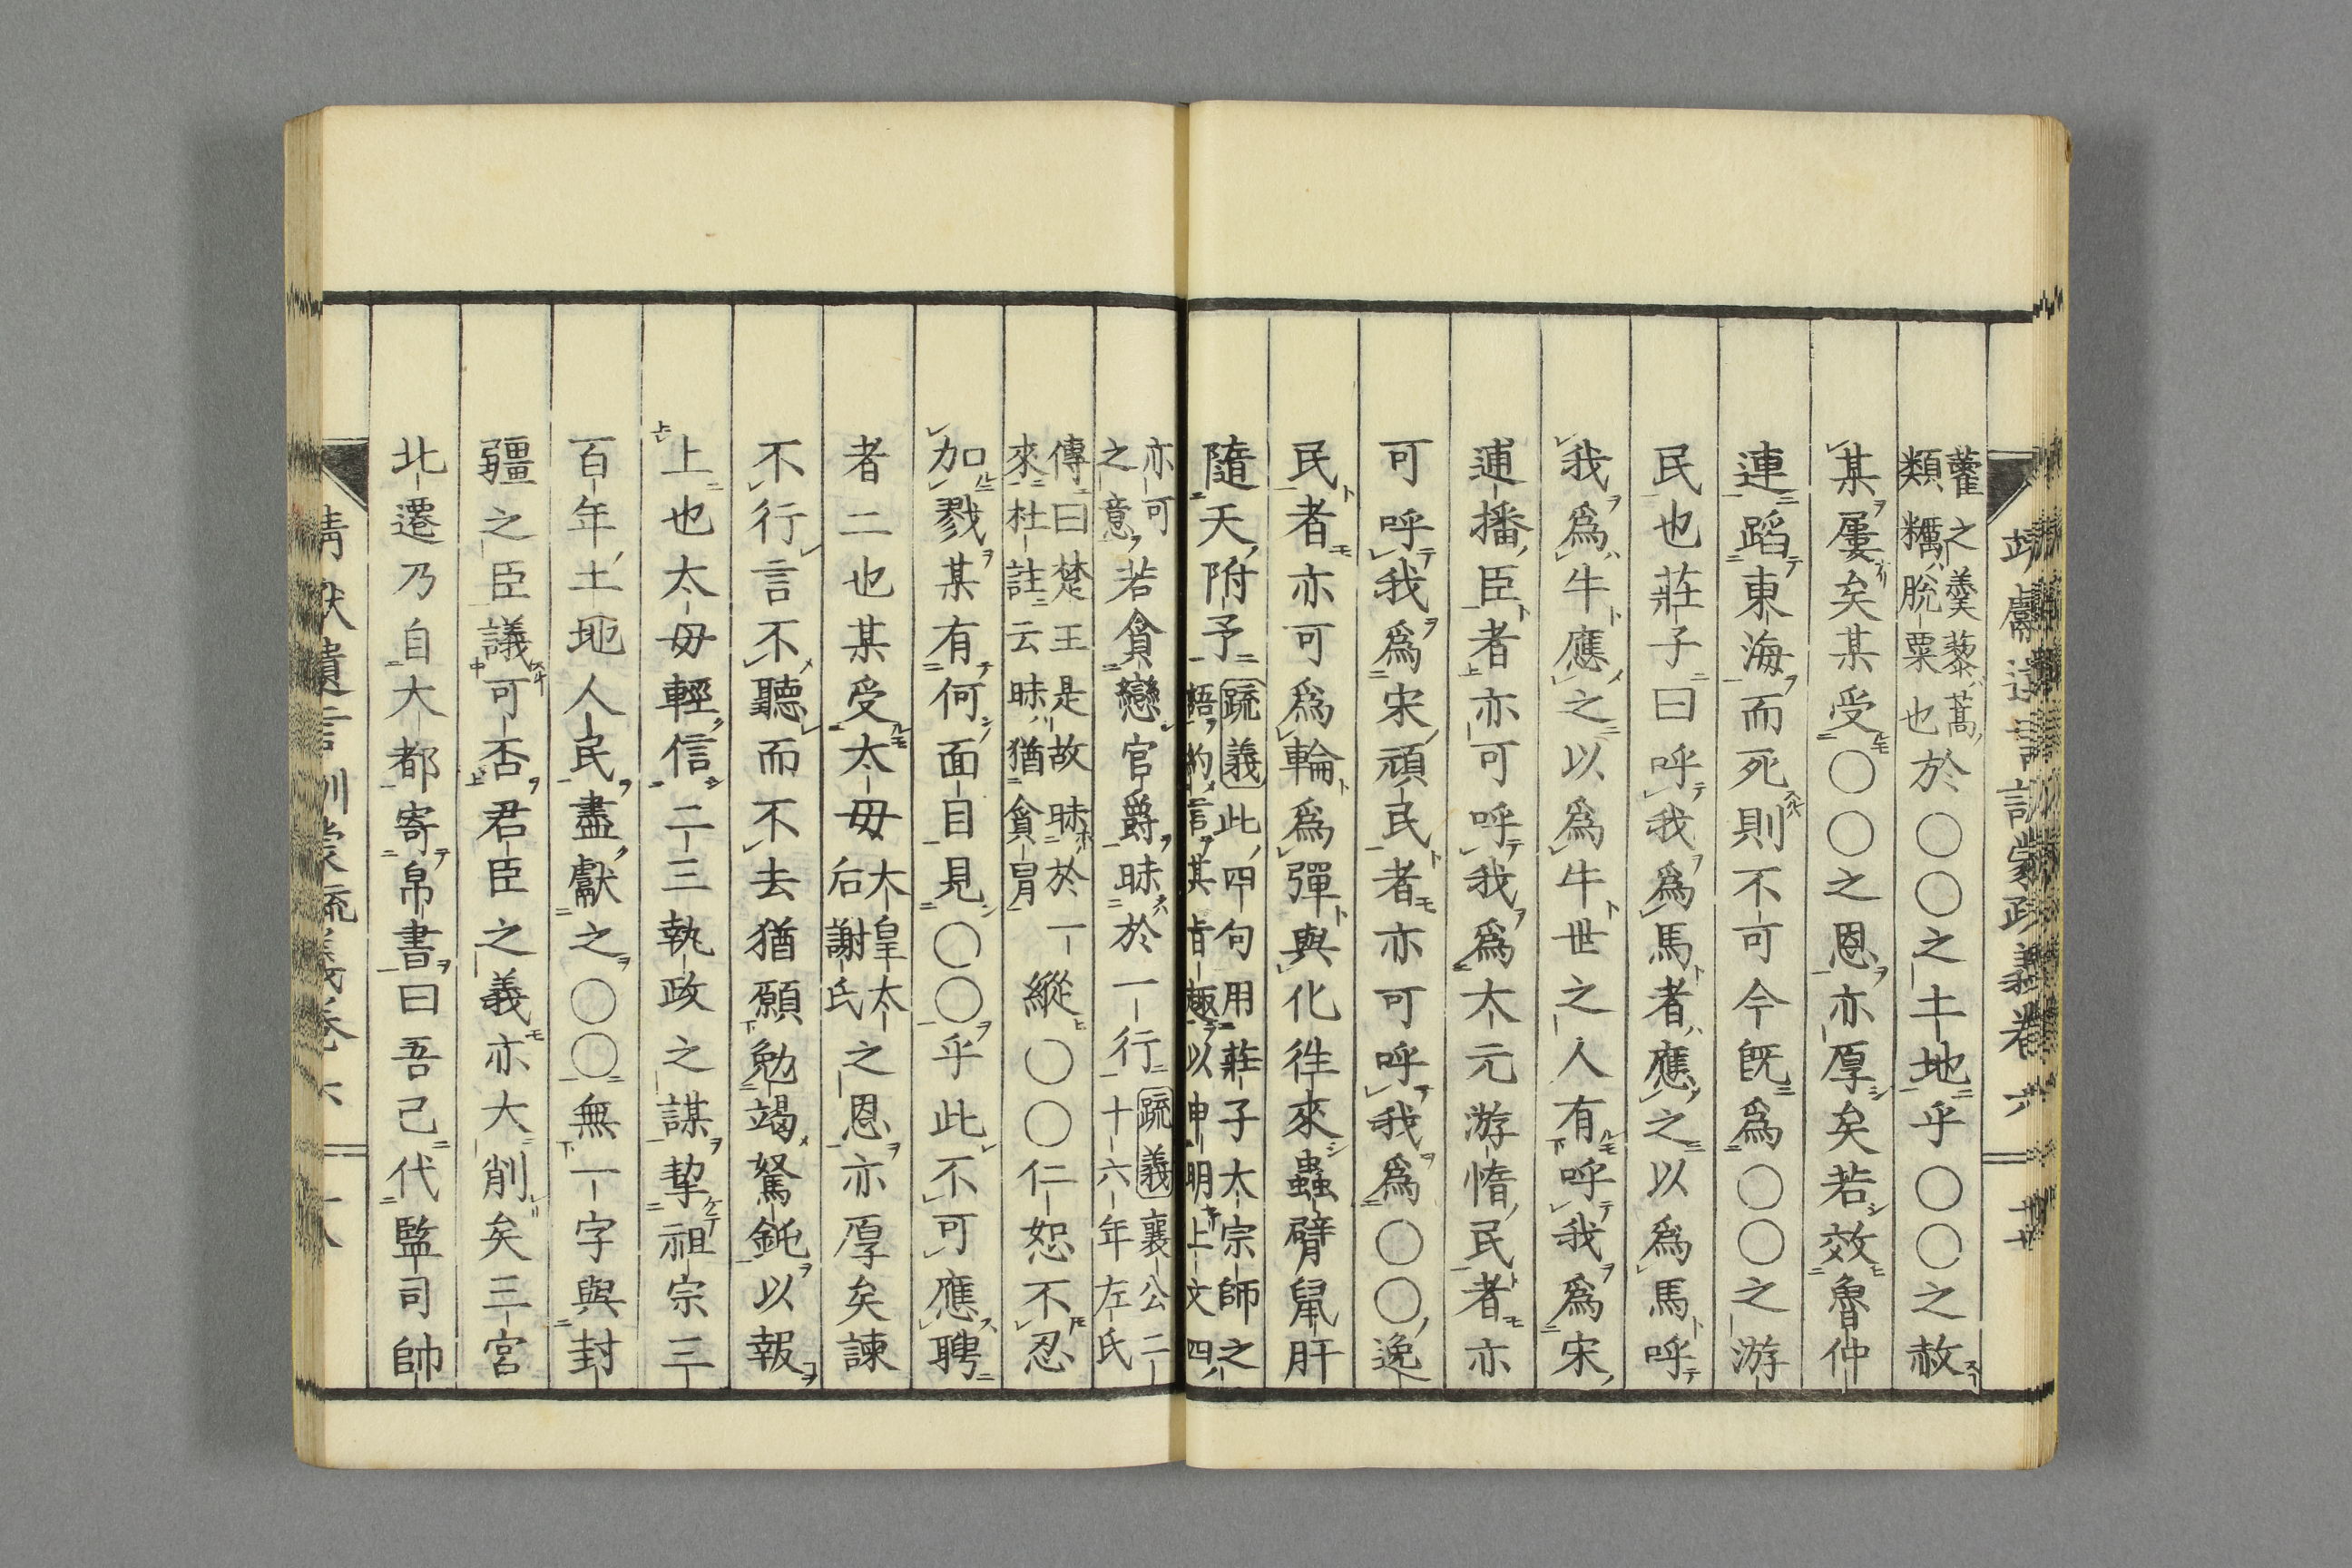 藿之羹藜蒿
類糲脫粟也於○○之土地乎○○之赦
某屢矣某受○○之恩亦厚矣若效魯仲
連蹈東海而死則不可今既爲○○之游
民也莊子曰呼我爲馬者應之以爲馬呼
我爲牛應之以爲牛世之人有呼我爲宋
逋播臣者亦可呼我爲太元游惰民者亦
可呼我爲宋頑民者亦可呼我爲○○逸
民者亦可爲輪爲彈與化徃來蟲臂鼠肝
隨天附予
疏義此四句用莊子大宗師之
語約言其旨趣以申明上文四
亦可
之意若貪戀官爵昧於一行
疏義襄公二
十六年左氏
傳曰楚王是故昧於一
來杜註云昧猶貪冒縱○○仁恕不忍
加戮某有何面目見○○乎此不可應聘
者二也某受太毋
太皇太
后謝氏之恩亦厚矣諫
不行言不聽而不去猶願勉竭駑鈍以報
上也太毋輕信二三執政之謀挈祖宗三
百年土地人民盡獻之○○無一字與封
疆之臣議可否君臣之義亦大削矣三宮
北遷乃自大都寄帛書曰吾己代監司帥